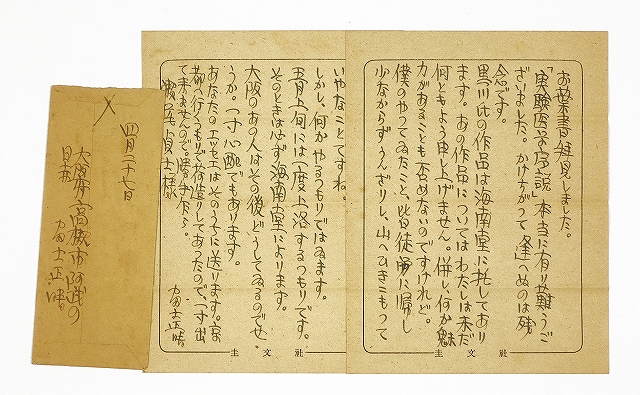 お葉書拝見しました。
「実験医学序説」本当に有り難うご
ざいました。かけちがって逢へぬのは残
念です。
黒川氏の作品は海南堂に托してあり
ます。あの作品についてはわたしは未だ
何とも申し上げません。併し、何か魅
力があることも否めないのですけれど。
僕のやってゐたこと、皆徒労に帰し
少なからずうんざりし、山へひきこもって
いやなことですね。
しかし、何かやるつもりではゐます。
五月上旬には一度上洛するつもりです。
そのときは必ず海南堂によります。
大阪のあの人はその後どうしてゐるのでせ
うか。一寸心配でもあります。
あなたのエッセエはそのうちに送ります。京
都へ行くつもりで荷造してあったので、一寸出
て来ませんので。勝手乍ら。
富士正晴
貞士様
圭文社
圭文社
四月二十七日
大阪府高槻市阿武の
富士正晴